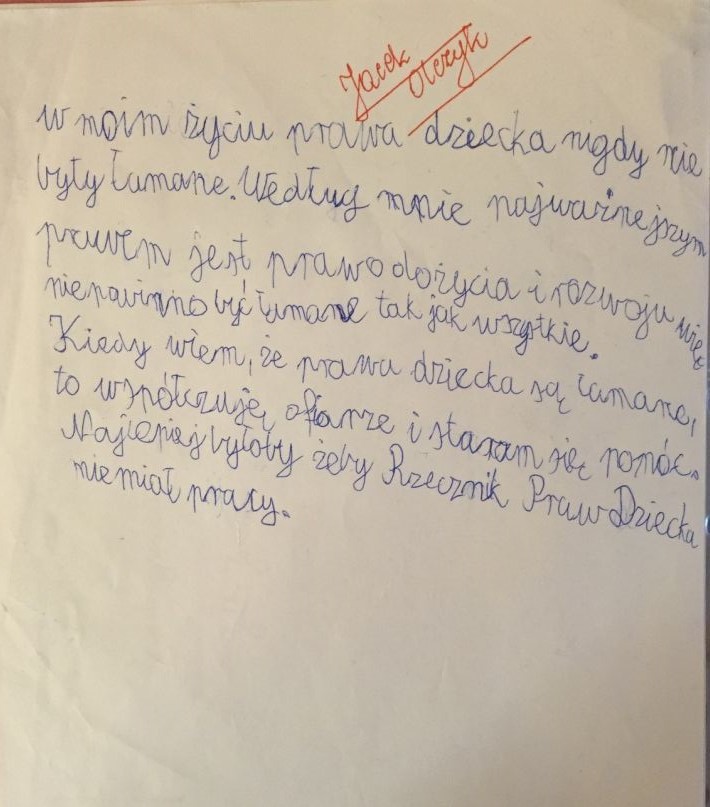 Jacek
Olczyk
w moim życiu prawa dziecka nigdy nie
były łamane. Według mnie najważnejszym
prawem jest prawo dożycia i rozwoju więc
niepowinno być łamane tak jak wszystkie.
Kiedy wiem, że prawa dziecka są łamane,
to współczuję ofiarze i staram się pomóc.
Najlepiej byłoby żeby Rzecznik Praw Dziecka
nie miał pracy.